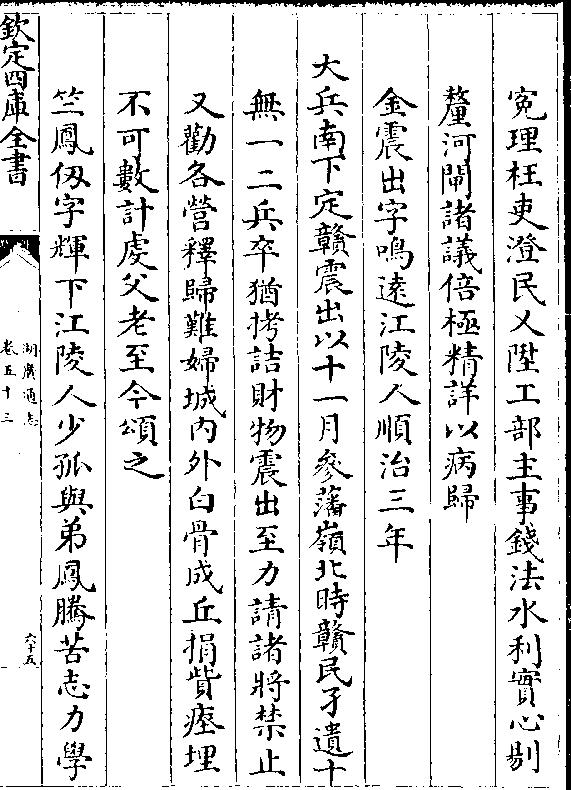 寃理枉吏澄民乂陞工部主事錢法水利實心剔
釐河閘諸議倍極精詳以病歸
金震出字鳴逺江陵人順治三年
大兵南下定贛震出以十一月參藩嶺北時贛民孑遺十
無一二兵卒猶拷詰財物震出至力請諸將禁止
又勸各營釋歸難婦城内外白骨成丘捐貲瘞埋
不可數計虔父老至今頌之
竺鳳伋字輝下江陵人少孤與弟鳳騰苦志力學
欽定四庫全書
湖廣通志
卷五十三
六十五